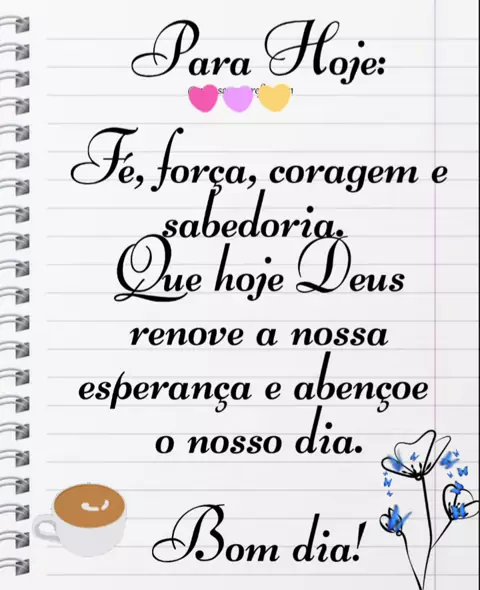 Para Hoje:
Fé, força, coragem e
sabedoria.
Que hoje Deus
renove a nossa
esperança e abençoe
o nosso dia.
Bom dia!